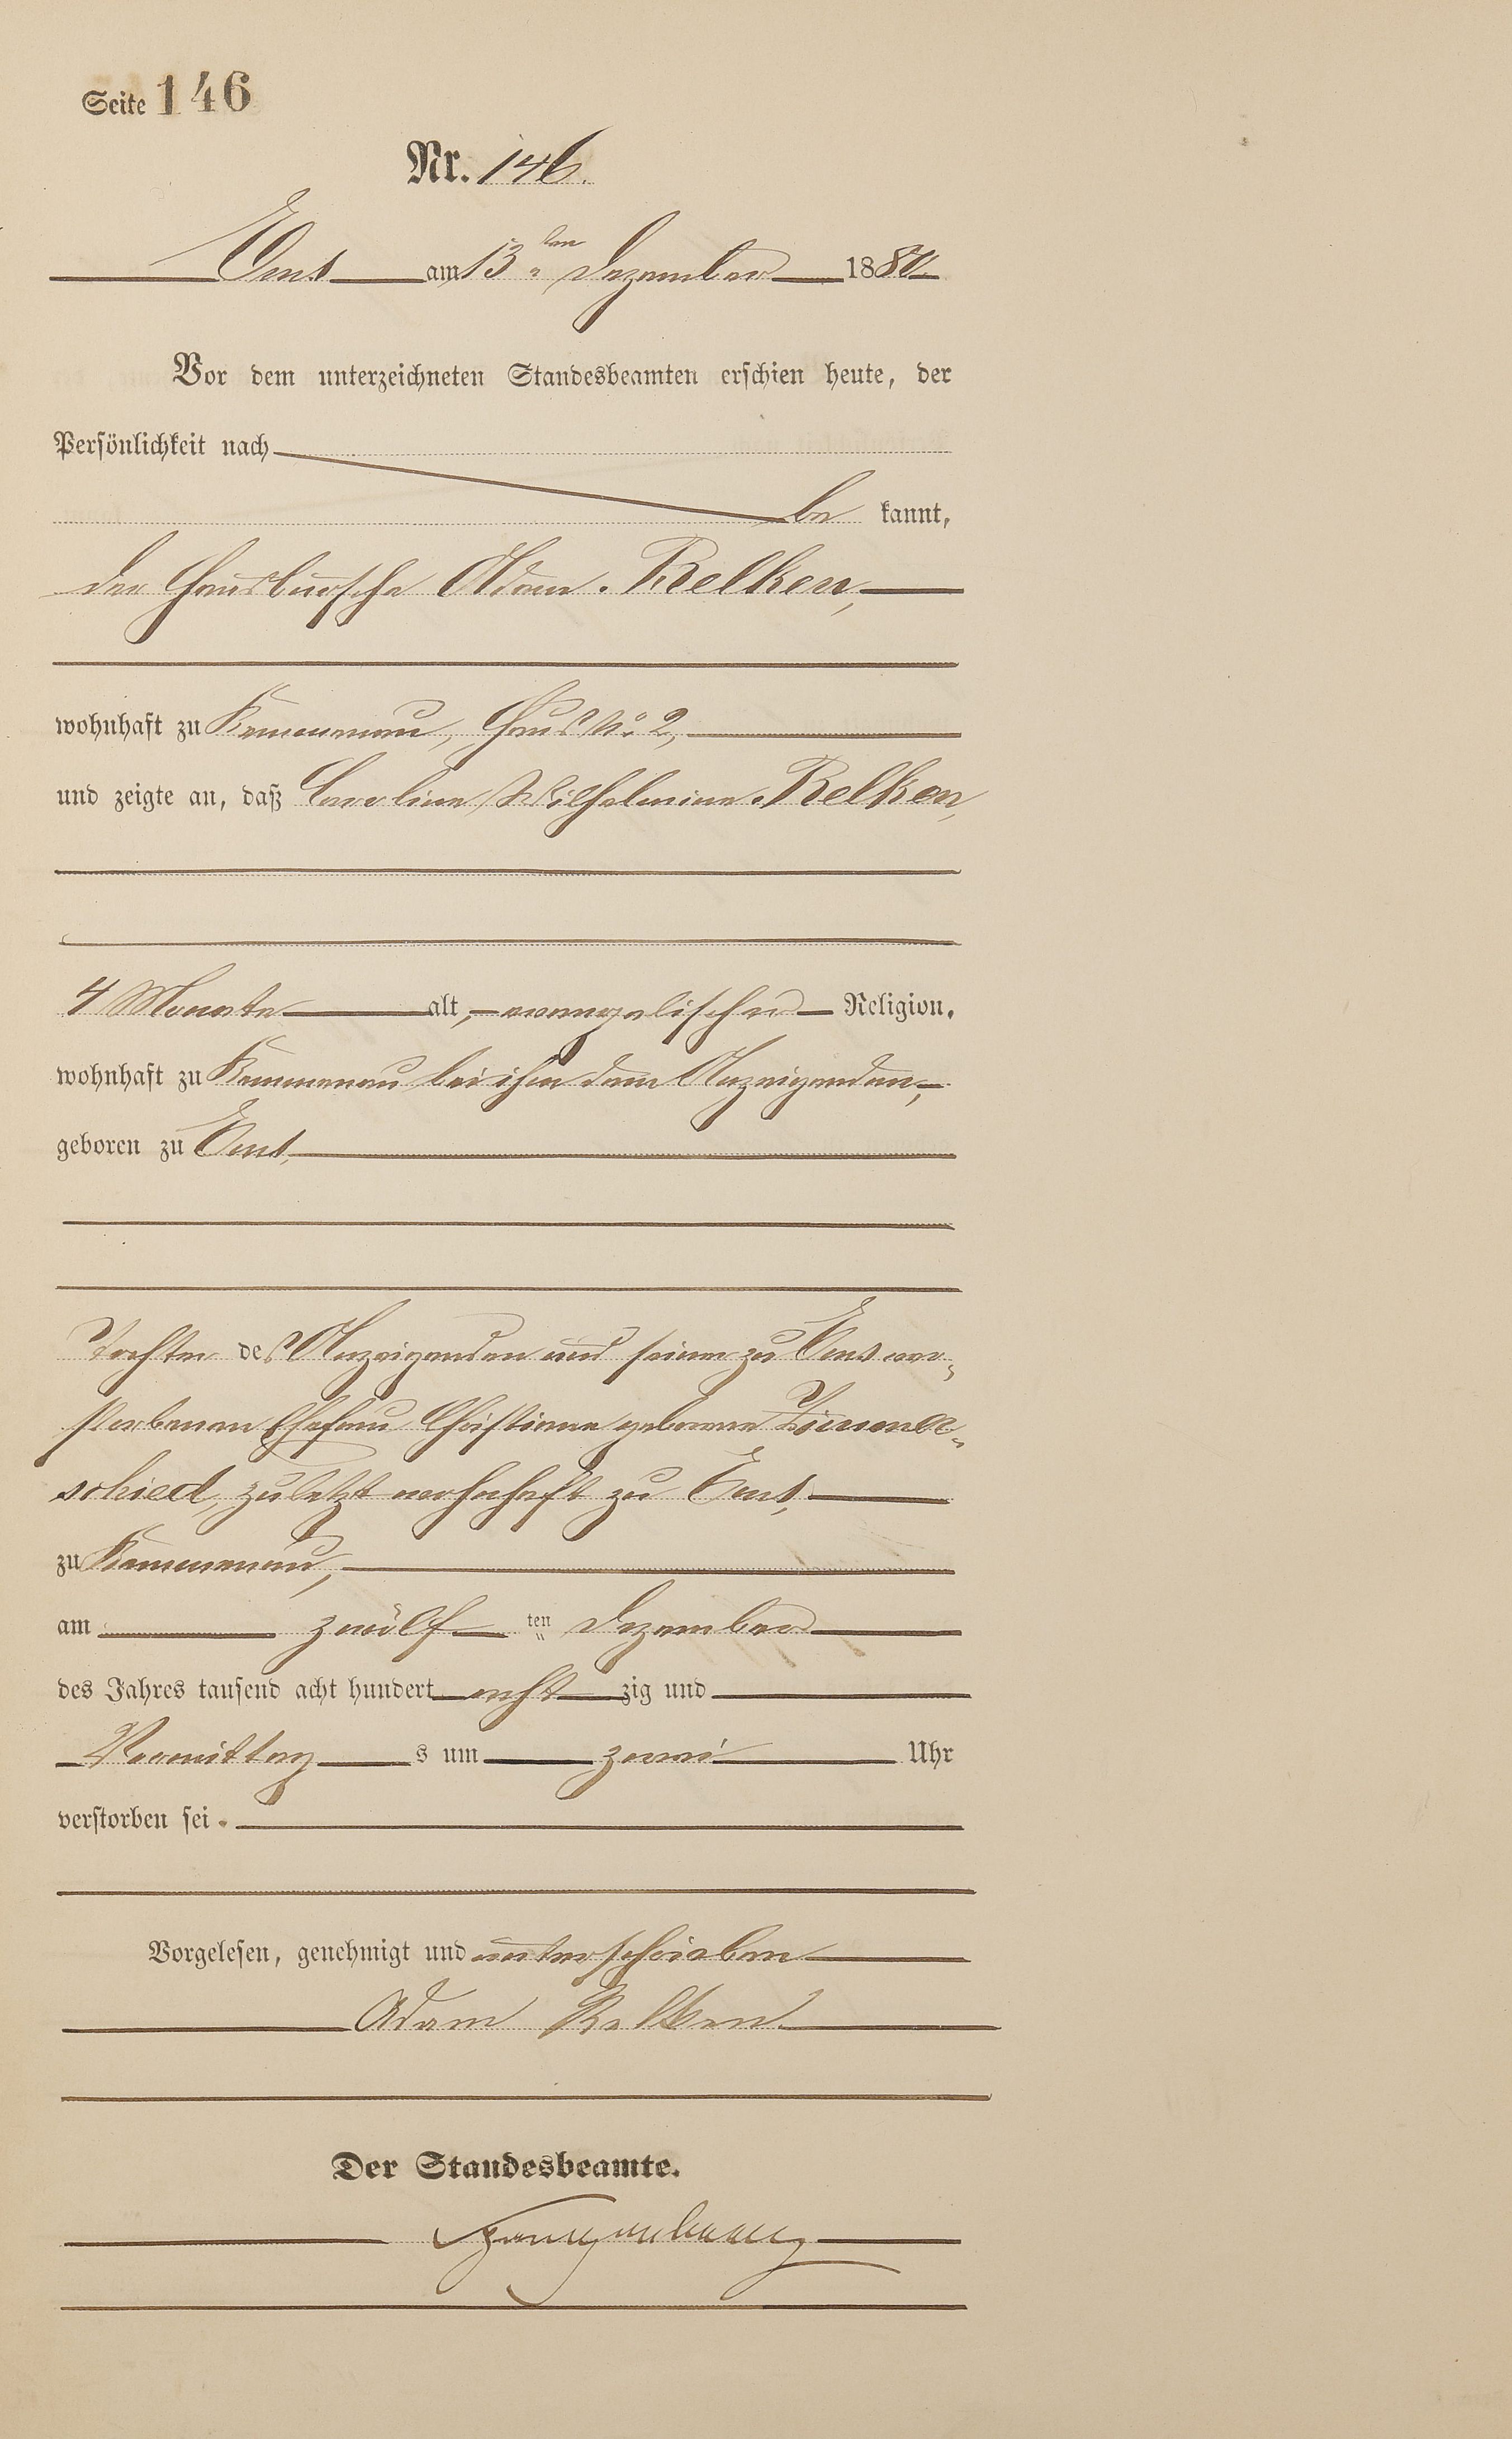 Seite 146
Nr. 146.
Ems am 13ten Dezember 1880
Vor dem unterzeichneten Standesbeamten erschien heute, der
Persönlichkeit nach
be kannt,
der Hausbursche Adam Relken,
wohnhaft zu Kemmenau, Haus No. 2,
und zeigte an, daß Caroline Wilhelmine Relken,
4 Monate alt, evangelischer Religion,
wohnhaft zu Kemmenau bei ihm dem Anzeigenden,
geboren zu Ems,
Tochter des Anzeigenden und seiner zu Ems ver-
storbenen Ehefrau Christiane geborene
schied, zuletzt wohnhaft zu Ems,
zu Kemmenau,
am zwölf ten Dezember
des Jahres tausend acht hundert acht zig und
Vormittag s um zwei Uhr
verstorben sei.
Vorgelesen, genehmigt und unterschrieben
Adam Relken
Der Standesbeamte.